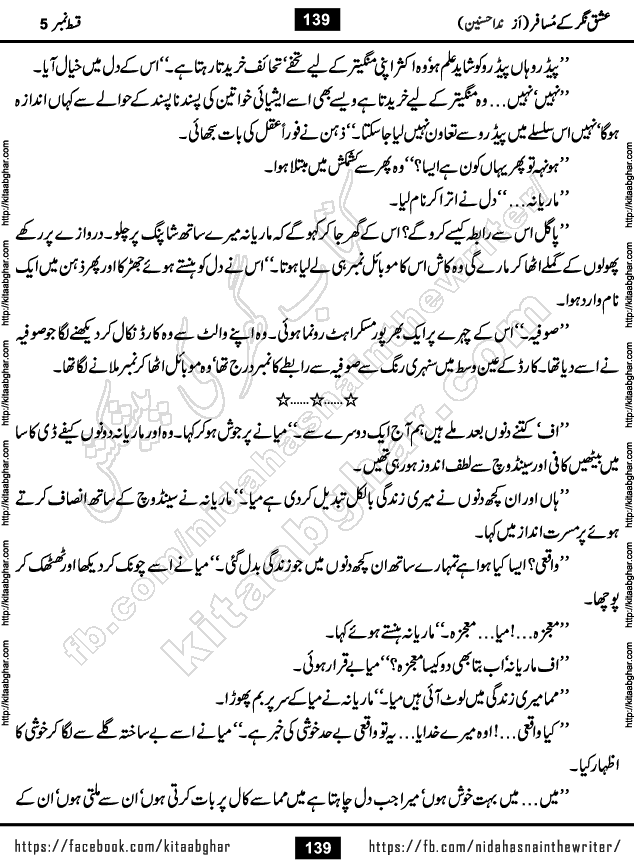 عشق نگر کے مُسافر (اَز نداحسنین) 139 قسط نمبر 5
’’پیڈرو ہاں پیڈرو کو شاید علم ہو‘ وہ اکثر اپنی منگیتر کے لیے تحفے‘ تحائف خریدتا رہتا ہے۔‘‘ اس کے دل میں خیال آیا۔
’’نہیں‘ نہیں... وہ منگیتر کے لیے خریدتا ہے ویسے بھی اسے ایشیائی خواتین کی پسند ناپسند کے حوالے سے کہاں اندازہ
ہوگا‘ نہیں اس سلسلے میں پیڈرو سے تعاون نہیں لیا جاسکتا۔‘‘ ذہن نے فوراً عقل کی بات سجھائی۔
’’ہونہہ تو پھر یہاں کون ہے ایسا؟‘‘ وہ پھر سے کشمکش میں مبتلا ہوا۔
’’ماریانہ...‘‘ دل نے اترا کر نام لیا۔
’’پاگل اس سے رابطہ کیسے کرو گے؟ اس کے گھر جا کر کہو گے کہ ماریانہ میرے ساتھ شاپنگ پر چلو۔ دروازے پر رکھے
پھولوں کے گملے اٹھا کر مارے گی وہ کاش اس کا موبائل نمبر ہی لے لیا ہوتا۔‘‘ اس نے دل کو ہنستے ہوئے جھڑکا اور پھر ذہن میں ایک
نام وارد ہوا۔
’’صوفیہ۔‘‘ اس کے چہرے پر ایک بھرپور مسکراہٹ رونما ہوئی۔ وہ اپنے والٹ سے وہ کارڈ نکال کر دیکھنے لگا جو صوفیہ
نے اسے دیا تھا۔ کارڈ کے عین وسط میں سنہری رنگ سے صوفیہ سے رابطے کا نمبر درج تھا‘ وہ موبائل اٹھا کر نمبر ملانے لگا تھا۔
☆......☆......☆
’’اف‘ کتنے دنوں بعد ملے ہیں ہم آج ایک دوسرے سے۔‘‘ میا نے پرجوش ہو کر کہا۔ وہ اور ماریانہ دونوں کیفے ڈی کاسا
میں بیٹھیں کافی اور سینڈوچ سے لطف اندوز ہورہی تھیں۔
’’ہاں اور ان کچھ دنوں نے میری زندگی بالکل تبدیل کردی ہے میا۔‘‘ ماریانہ نے سینڈوچ کے ساتھ انصاف کرتے
ہوئے پرمسرت انداز میں کہا۔
’’واقعی؟ ایسا کیا ہوا ہے تمہارے ساتھ ان کچھ دنوں میں جو زندگی بدل گئی۔‘‘ میا نے اسے چونک کر دیکھا اور ٹھٹھک کر
پوچھا۔
’’معجزہ...! میا... معجزہ۔‘‘ ماریانہ ہنستے ہوئے کہا۔
’’اف ماریانہ‘ اب بتا بھی دو کیسا معجزہ؟‘‘ میا بے قرار ہوئی۔
’’مما میری زندگی میں لوٹ آئی ہیں میا۔‘‘ ماریانہ نے میا کے سر پر بم پھوڑا۔
’’کیا واقعی...! اوہ میرے خدایا... یہ تو واقعی بے حد خوشی کی خبر ہے۔‘‘ میا نے اسے بے ساختہ گلے سے لگا کر خوشی کا
اظہار کیا۔
’’میں... میں بہت خوش ہوں‘ میرا جب دل چاہتا ہے میں مما سے کال پر بات کرتی ہوں‘ ان سے ملتی ہوں‘ ان کے
https://facebook.com/kitaabghar 139 https://fb.com/nidahasnainthewriter/
http://kitaabghar.com
http://kitaabghar.com
http://kitaabghar.com
http://kitaabghar.com
http://kitaabghar.com
http://kitaabghar.com
http://kitaabghar.com
http://kitaabghar.com
http://kitaabghar.com
http://kitaabghar.com
http://kitaabghar.com
http://kitaabghar.com
کتاب گھر کی پیشکش
fb.com/nidahasnainthewriter/
kitaabghar.com